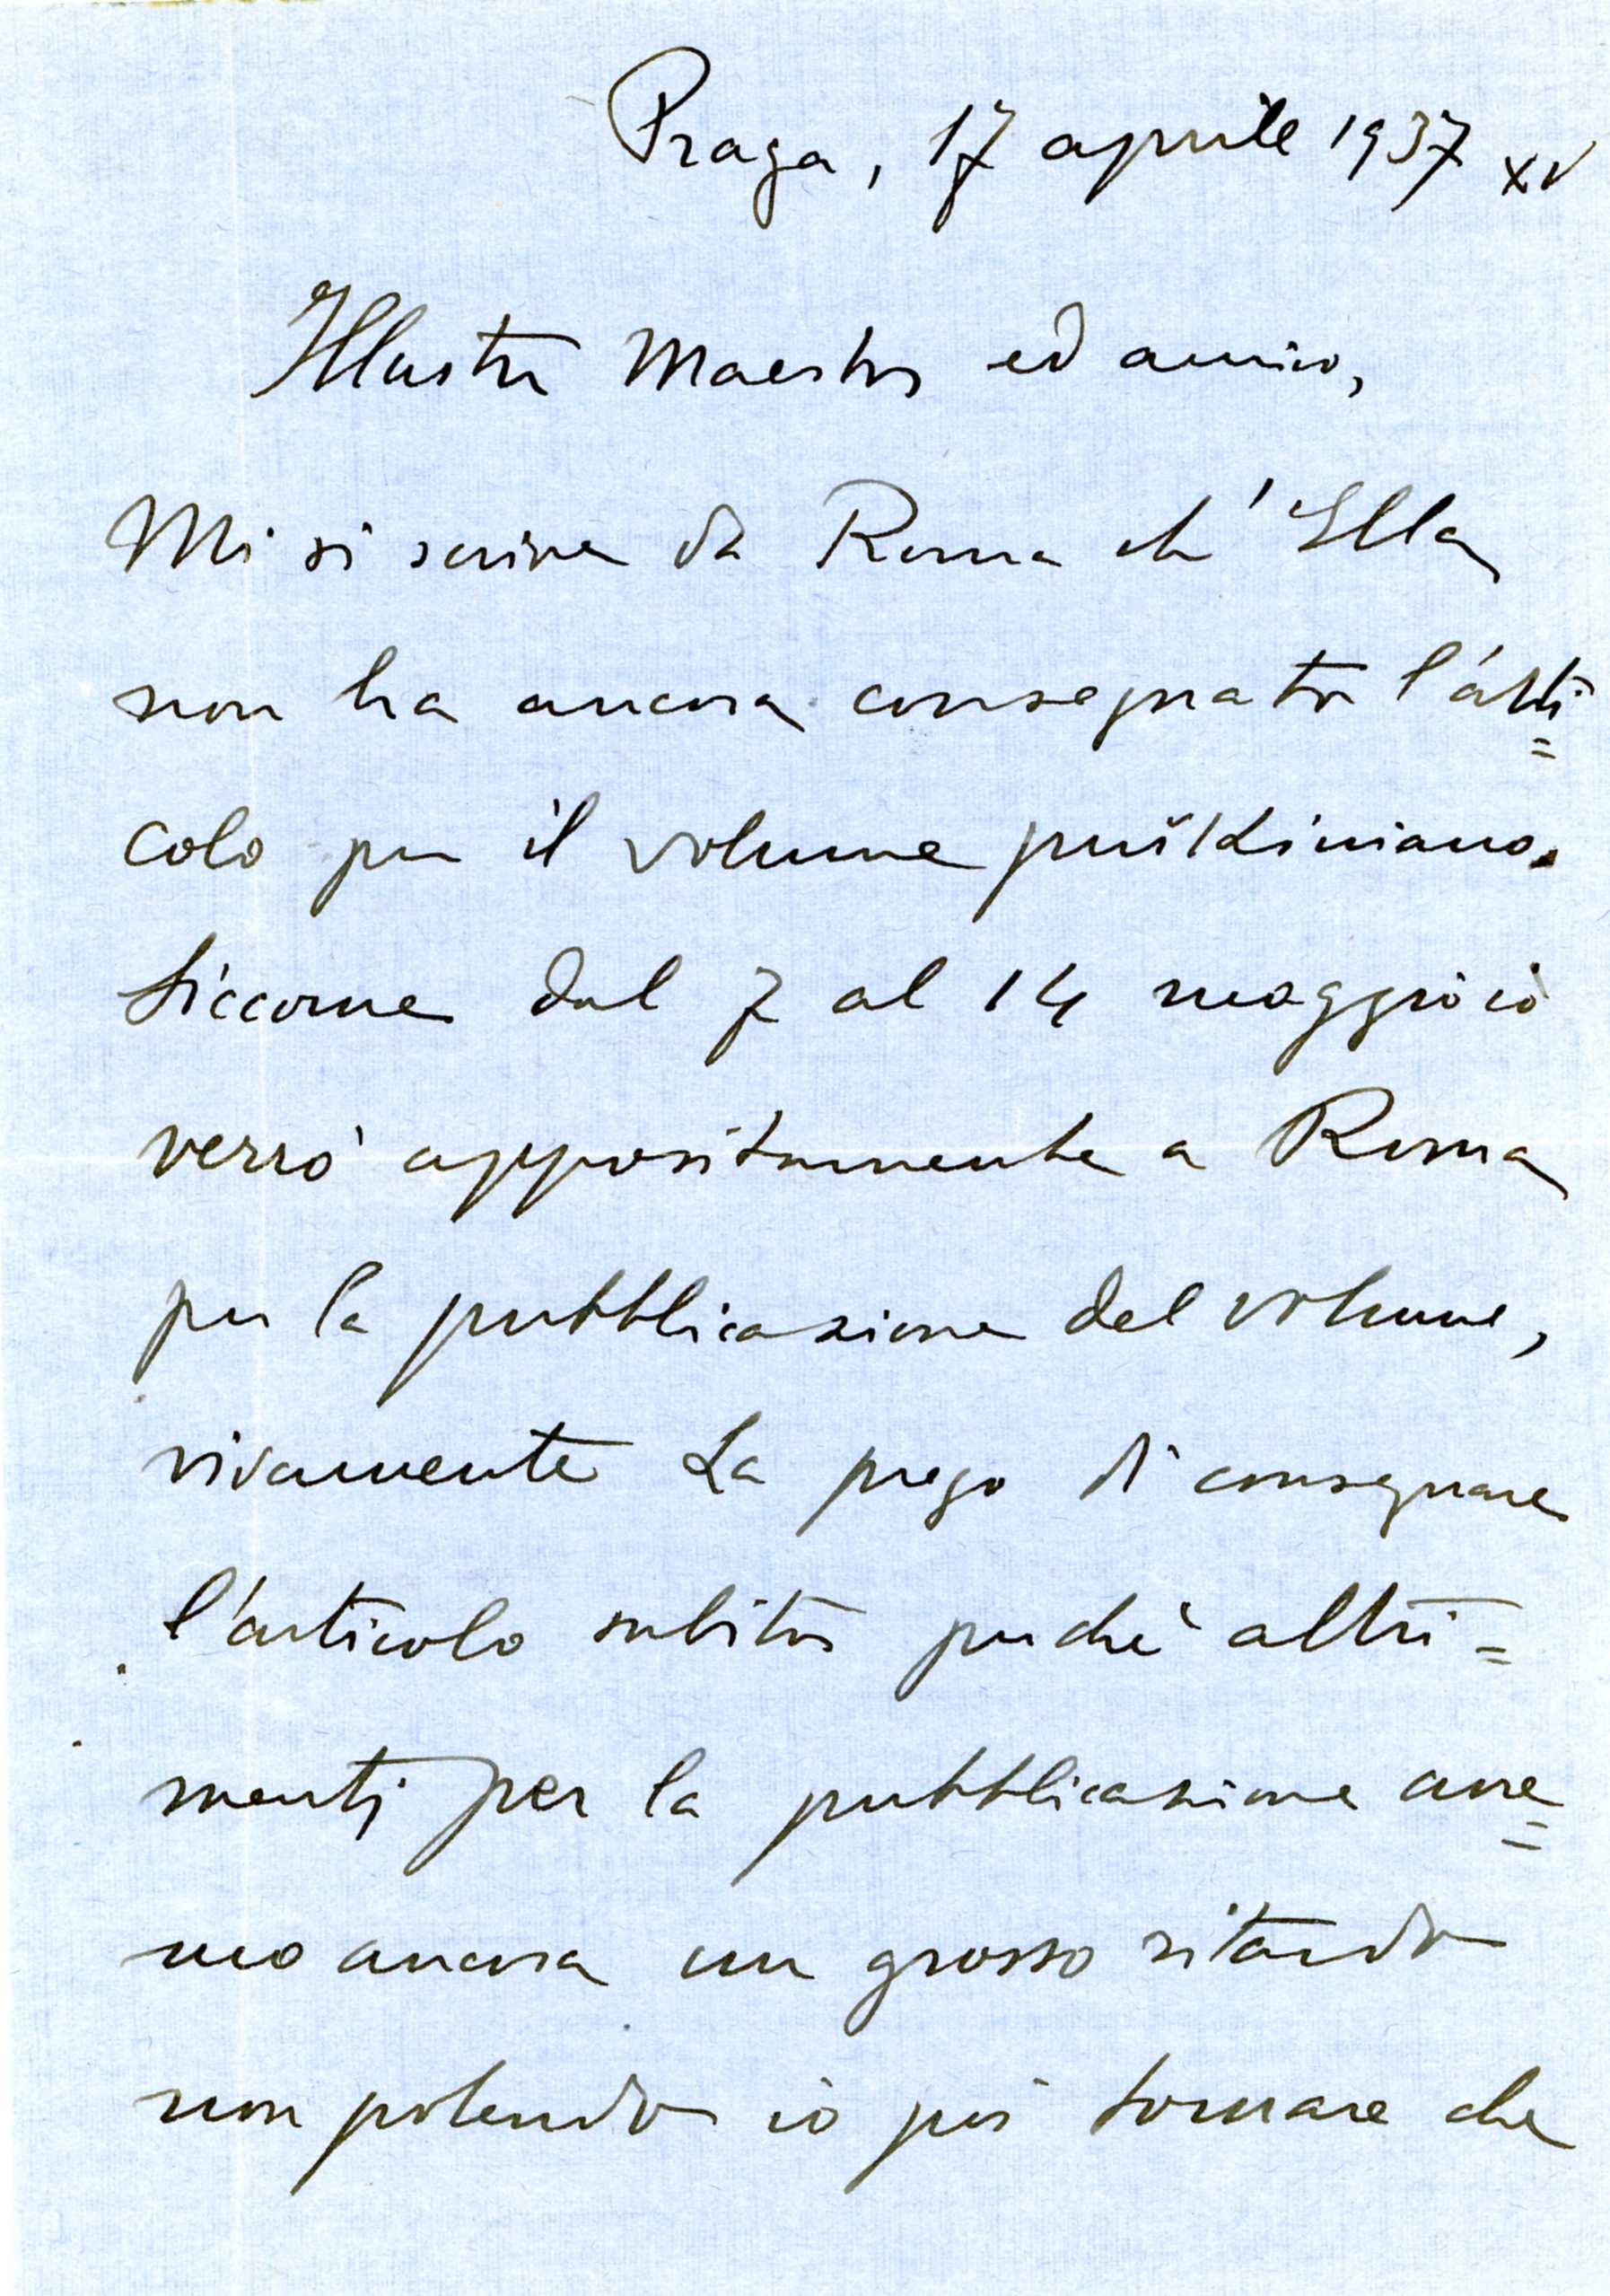 Praga, 17 aprile 1937 XV
Illustre Maestro ed amico,
Mi si scrive da Roma ch'Ella
non ha ancora consegnato l'arti=
colo per il volume puškiniano.
Siccome dal 7 al 14 maggio io
verrò appositamente a Roma
per la pubblicazione del volume,
vivamente La prego di consegnare
l'articolo subito perchè altri=
menti per la pubblicazione avre=
mo ancora un grosso ritardo
non potendo io poi tornare che